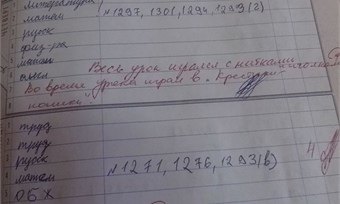 литература
матем №1297, 1301, 1294, 1293(г)
русск
физ-ра
матем
англ Весь урок игрался с нитками и иголками
Во время урока играл в „Крестики
нолики"
труд
труд
русск
матем №1271, 1276, 1293(в) 4
ОБХ